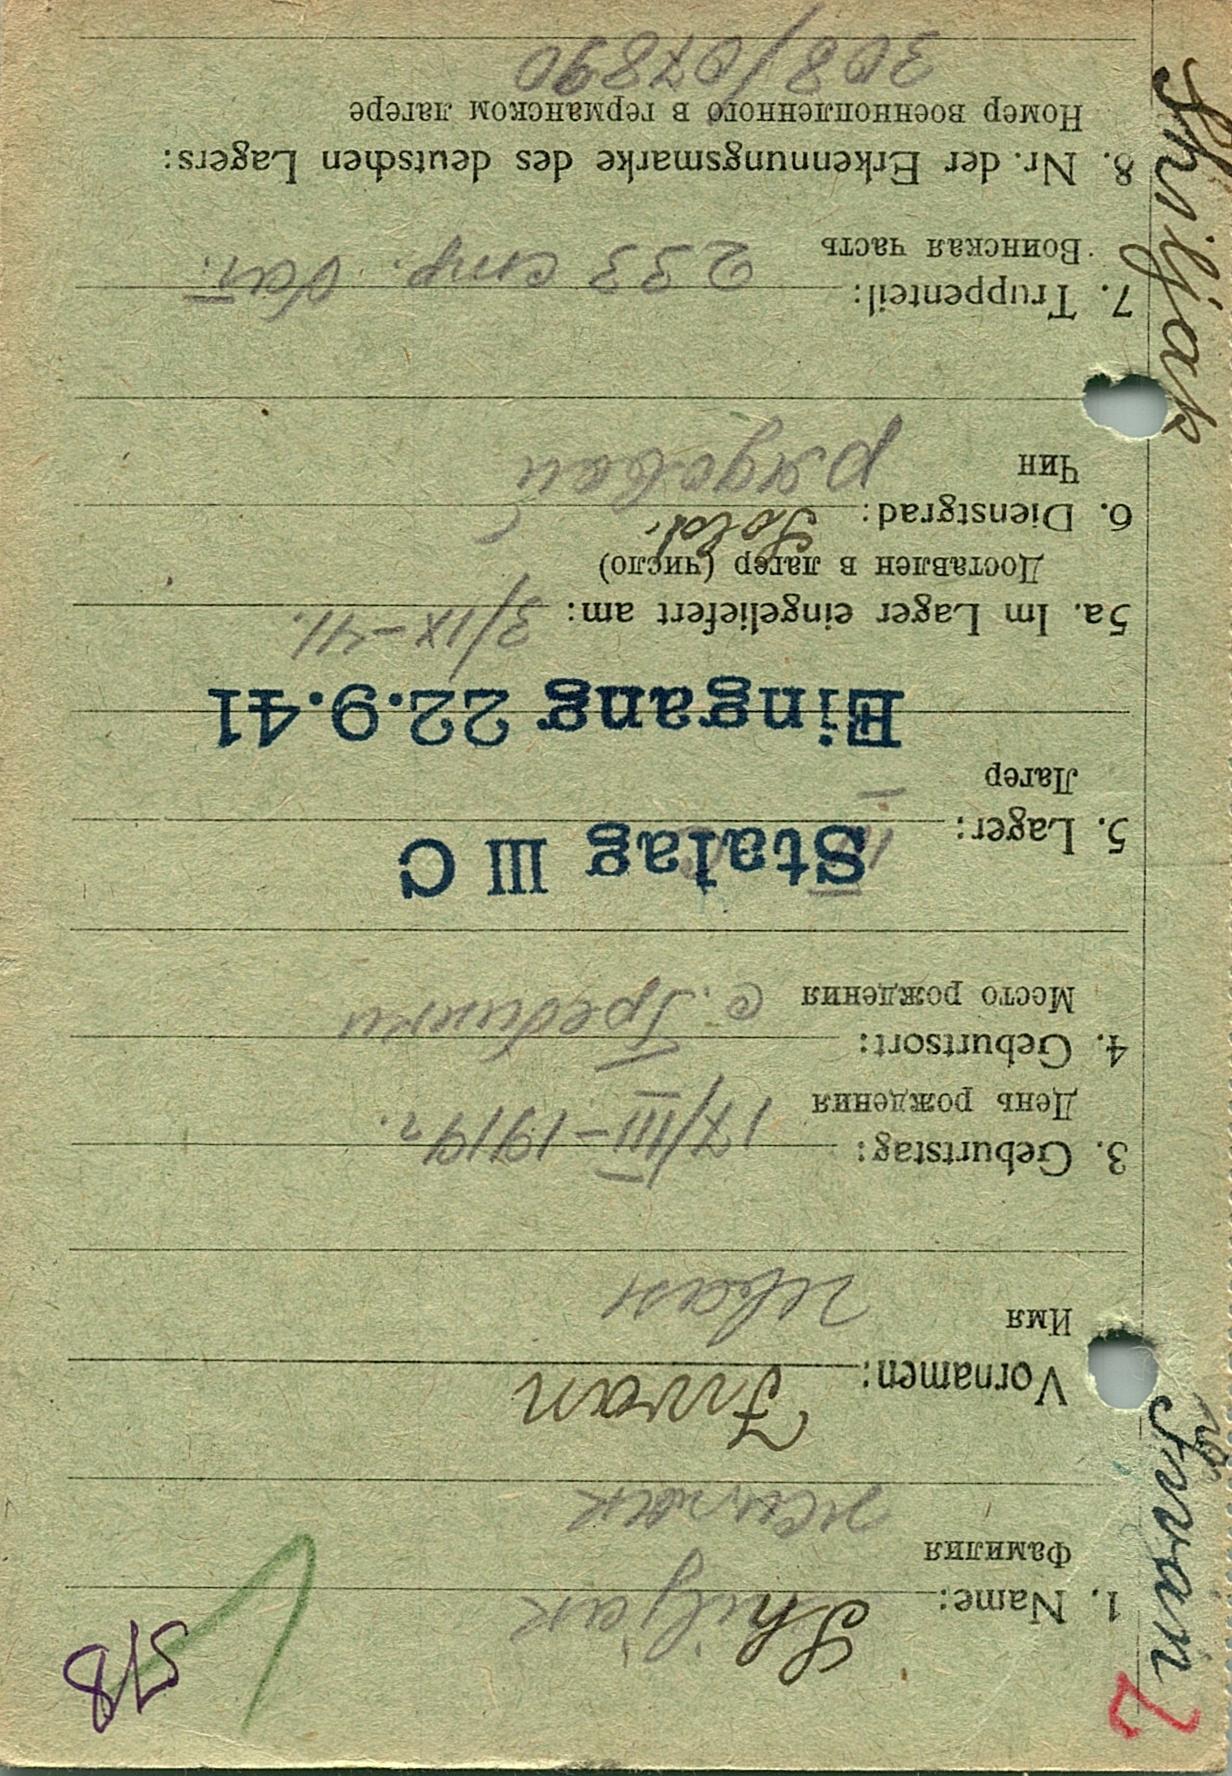 518
2
1. Name: Shiljak
Фамилия
жиляк
Vornamen: Iwan
Имя
иван
3. Geburtstag: 17/III-1919г.
День рождения
4. Geburtsort:
Место рождения с. Гребинки
5. Lager: Stalag III C
Лагер
Eingang 22.9.41
5a. Im Lager eingeliefert am: 3/IX-41.
Доставлен в лагер (число)
6. Dienstgrad: Sold.
Чин рядовой
7. Truppenteil:
Воинская часть 233 стр. бат.
8. Nr. der Erkennungsmarke des deutschen Lagers:
Номер военнопленного в германском лагере
308/07890
Shiljak
Iwan